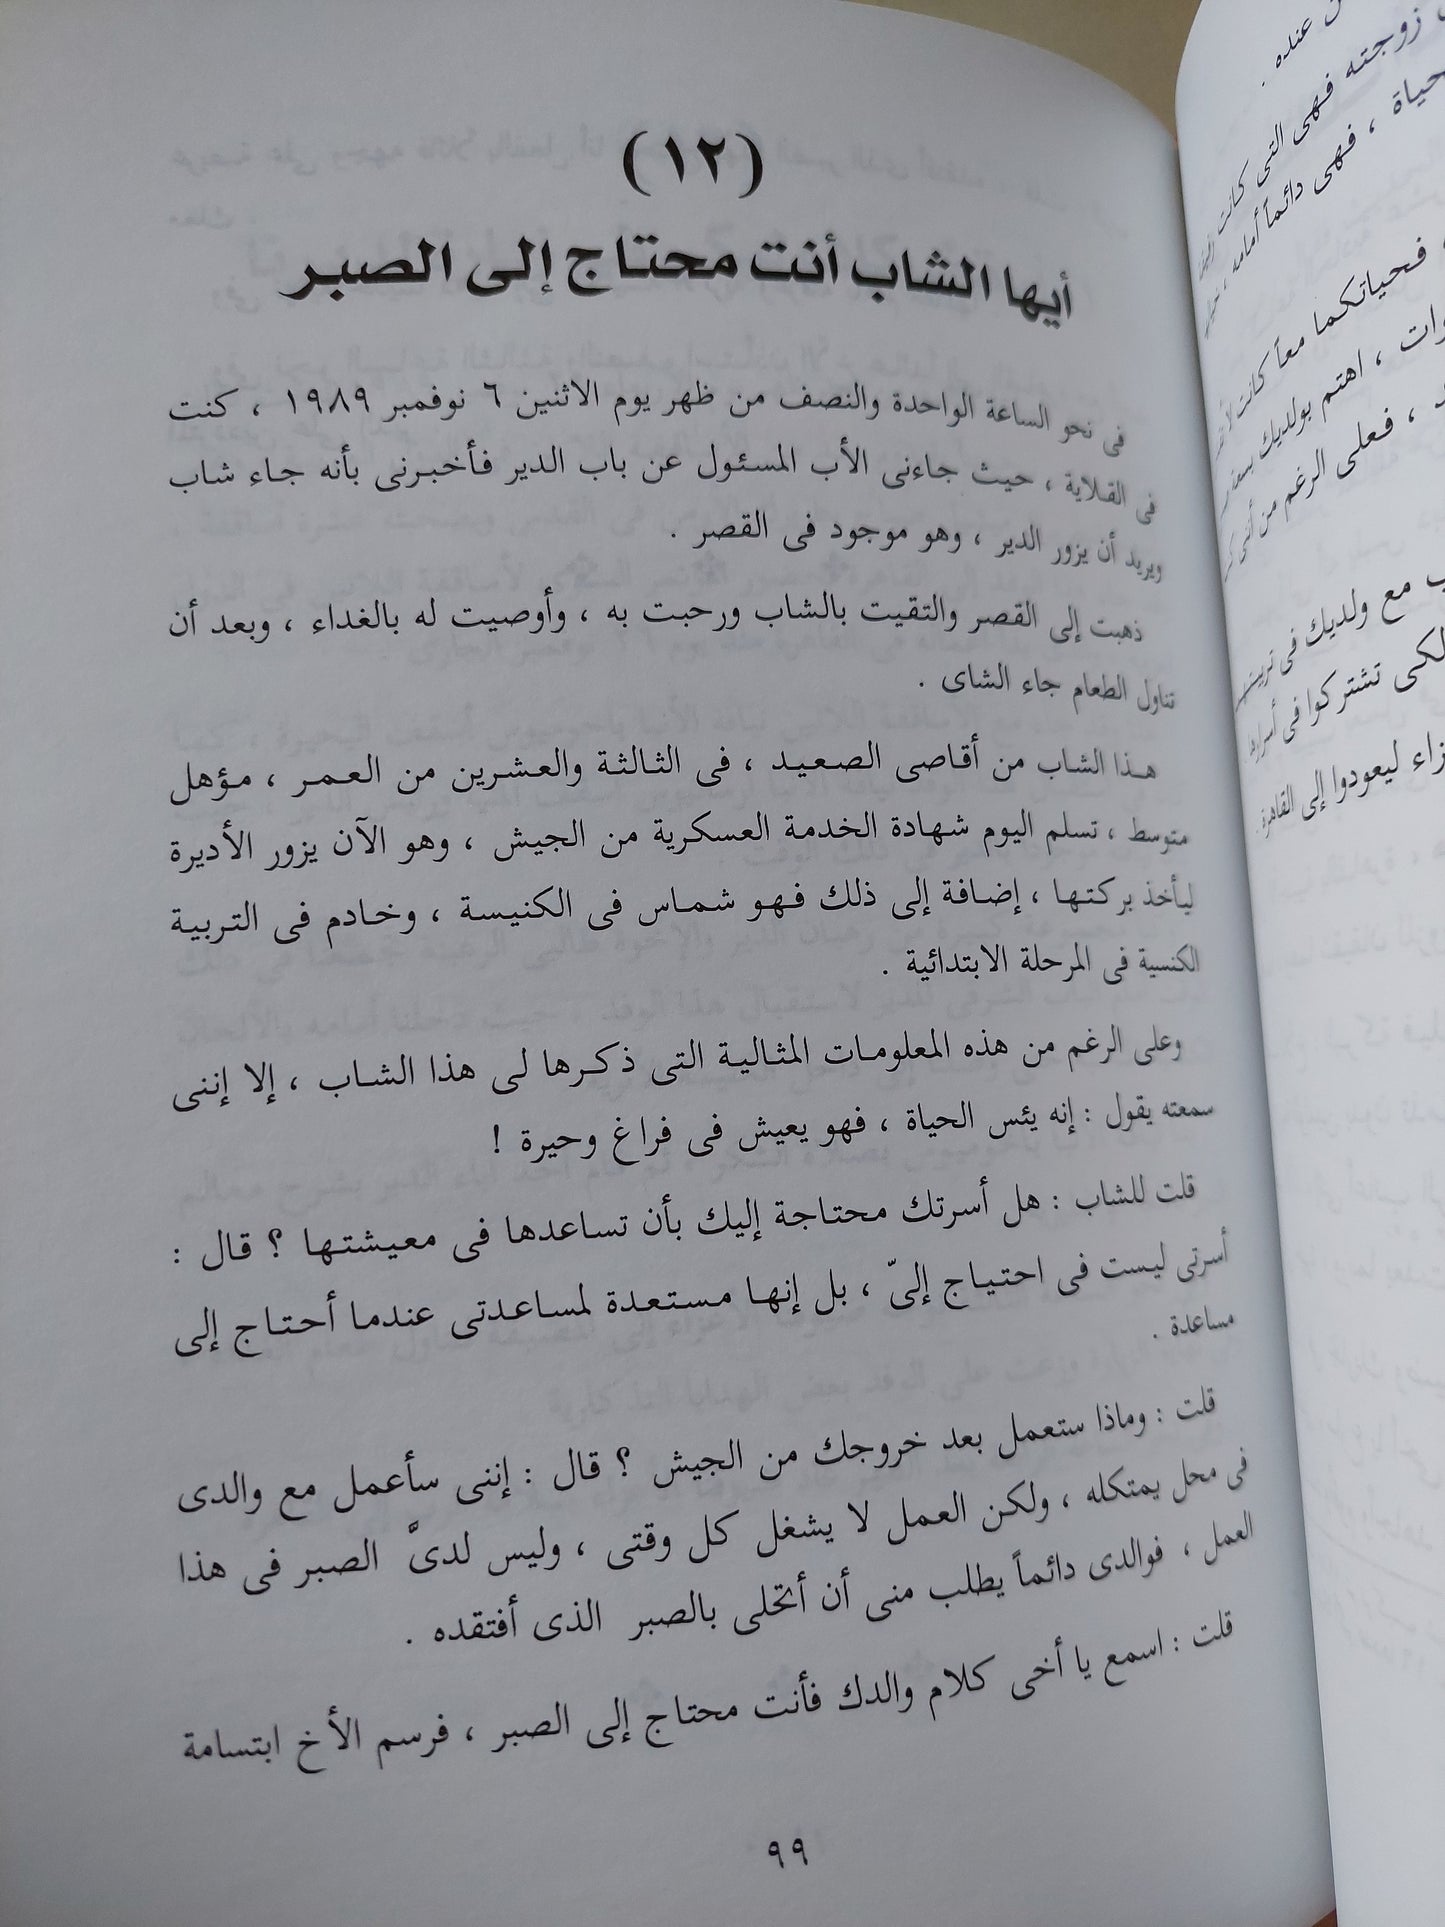 (١٢)
أيها الشاب أنت محتاج إلى الصبر
فى نحو الساعة الواحدة والنصف من ظهر يوم الاثنين ٦ نوفمبر ١٩٨٩ ، كنت
فى القلاية ، حيث جاءنى الأب المسئول عن باب الدير فأخبرنى بأنه جاء شاب
ويريد أن يزور الدير ، وهو موجود فى القصر .
ذهبت إلى القصر والتقيت بالشاب ورحبت به ، وأوصيت له بالغداء ، وبعد أن
تناول الطعام جاء الشاى .
هذا الشاب من أقاصى الصعيد ، فى الثالثة والعشرين من العمر ، مؤهل
متوسط ، تسلم اليوم شهادة الخدمة العسكرية من الجيش ، وهو الآن يزور الأديرة
ليأخذ بركتها ، إضافة إلى ذلك فهو شماس فى الكنيسة ، وخادم فى التربية
الكنسية فى المرحلة الابتدائية .
وعلى الرغم من هذه المعلومات المثالية التى ذكرها لى هذا الشاب ، إلا إننى
سمعته يقول : إنه يئس الحياة ، فهو يعيش فى فراغ وحيرة !
قلت للشاب : هل أسرتك محتاجة إليك بأن تساعدها فى معيشتها ؟ قال :
أسرتى ليست فى احتياج إلىّ ، بل إنها مستعدة لمساعدتى عندما أحتاج إلى
مساعدة .
قلت : وماذا ستعمل بعد خروجك من الجيش ؟ قال : إننى سأعمل مع والدى
فى محل يمتكله ، ولكن العمل لا يشغل كل وقتى ، وليس لدىَّ الصبر فى هذا
العمل ، فوالدى دائماً يطلب منى أن أتحلى بالصبر الذى أفتقده .
قلت : اسمع يا أخى كلام والدك فأنت محتاج إلى الصبر ، فرسم الأخ ابتسامة
٩٩
عنده .
زوجته فهى التى كانت
، فهى دائماً أمامه ،
فحياتكما معاً كانت
، اهتم بولديك
، فعلى الرغم من أننى
مع ولديك فى
لكى تشتركوا فى
ليعودوا إلى القاهرة .